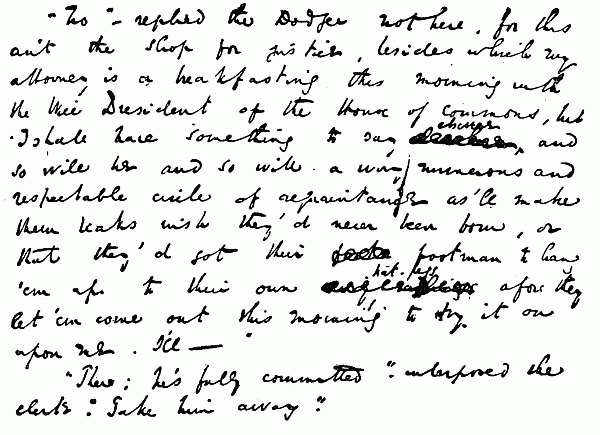 "No" - replied the Dodger not here, for this
ain't the shop for justice, besides which my
attorney is a breakfasting this morning with
the Vice President of the House of Commons, but
I shall have something to say elsewhere, and
so will he and so will a wery numerous and
respectable circle of acquaintance as'll make
them beaks wish they'd never been born, or
that they'd got their footman to hang
'em up to their own hat-pegs afore they
let 'em come out this morning to try it on
upon me. I'll — "
"There; he's fully committed". interposed the
clerk: "Take him away".